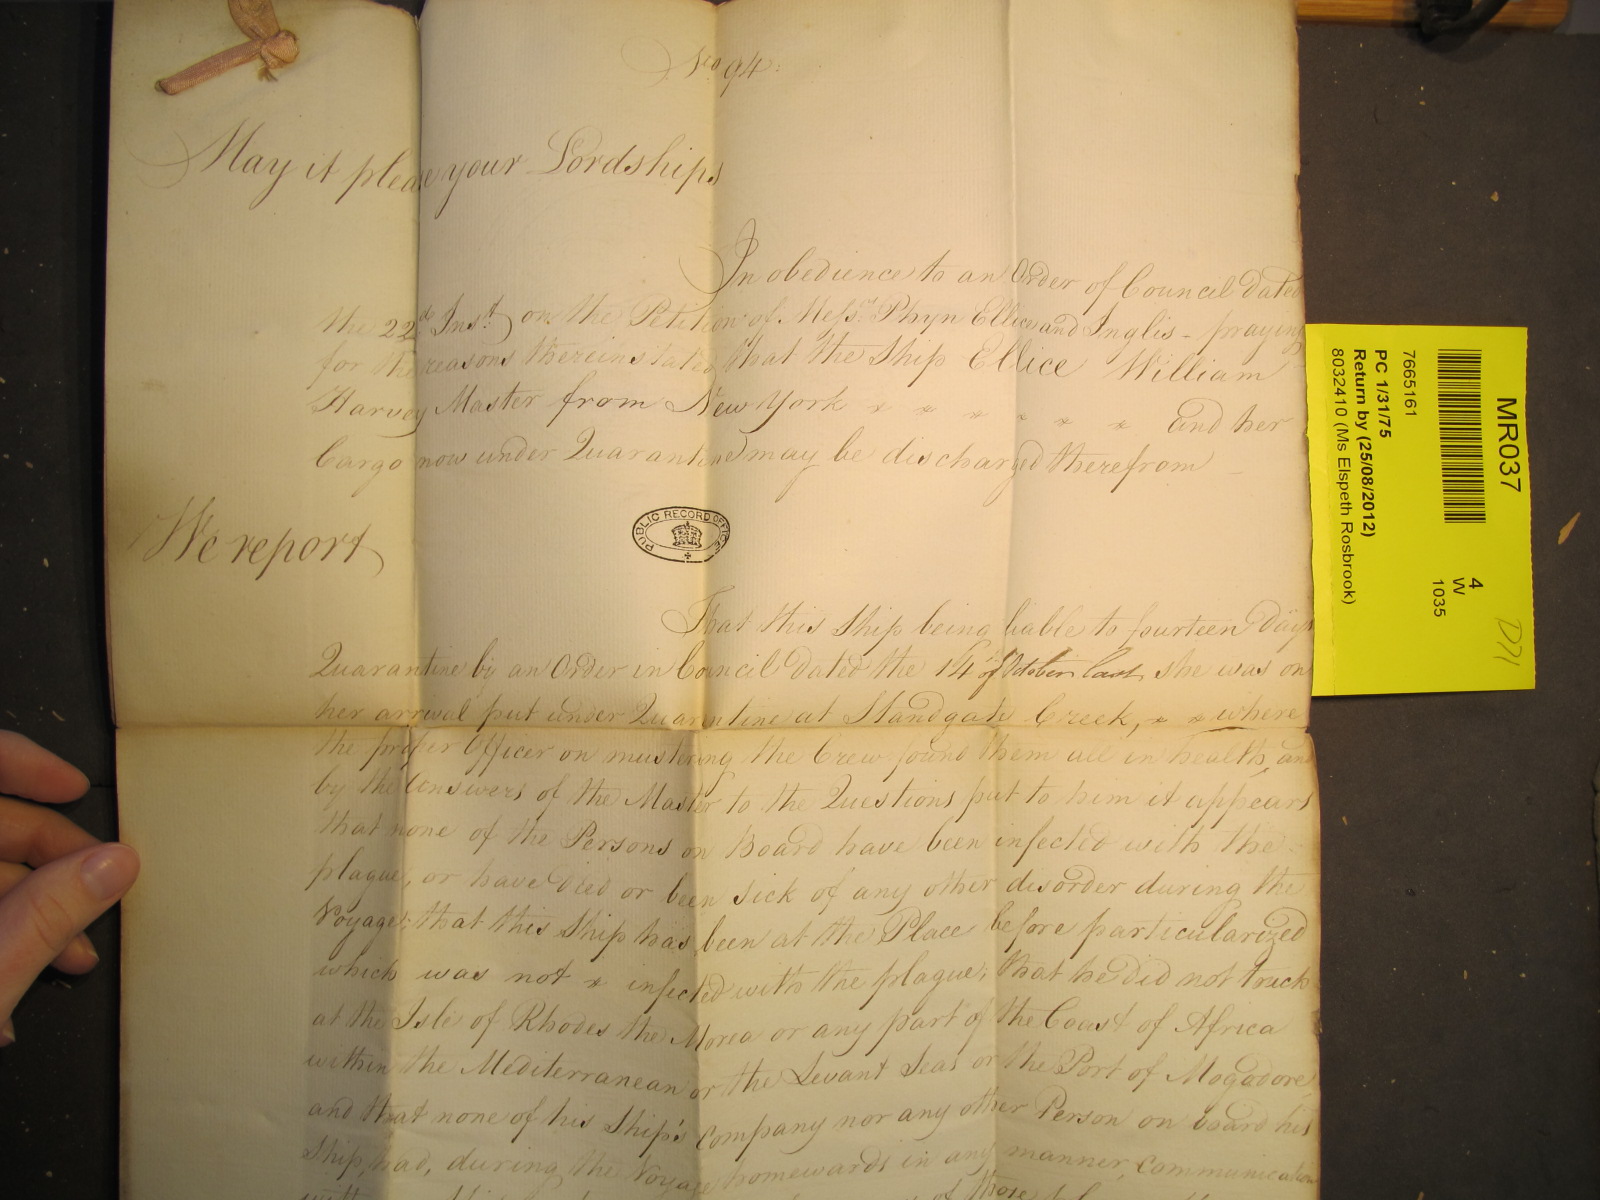 No. 94.
May it please your Lordships
In obedience to an Order of Council dated
the 22d Inst. on the Petition of Messrs. Phyn Ellice and Inglis - praying
for the reasons therein stated that the Ship Ellice William
Harvey Master from New York and her
Cargo now under Quarantine may be discharged therefrom
PUBLIC RECORD OFFICE
We report
That this Ship being liable to fourteen Days
Quarantine by an Order in Council dated the 14th of October last, she was on
her arrival put under Quarantine at Standgate Creek, where
the proper Officer on mustering the Crew found them all in health, and
by the Answers of the Master to the Questions put to him it appears
that none of the Persons on Board have been infected with the
plague, or have died or been sick of any other disorder during the
Voyage; that this Ship has been at the Place before particularized
which was not infected with the plague; that he did not touch
at the Isle of Rhodes the Morea or any part of the Coast of Africa
within the Mediterranean or the Levant Seas or the Port of Mogadore,
and that none of his Ship's Company nor any other Person on board his
Ship, had, during the Voyage homewards in any manner, communication
of those
MR037
4
W
1035
D71
7665161
PC 1/31/75
Return by (25/08/2012)
8032410 (Ms Elspeth Rosbrook)